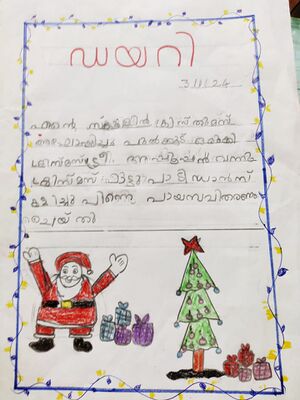 ഡയറി
3/1/24
എന്റെ സ്കൂളിൽ ക്രിസ്തുമസ്
ആഘോഷിച്ചു പുൽക്കൂട് ഒരുക്കി
ക്രിസ്മസ് ട്രീ വന്നു
ക്രിസ്മസ് പാട്ടു പാടി ഡാൻസ്
കളിച്ചു പിന്നെ പായസവിതരണം
ചെയ്തു